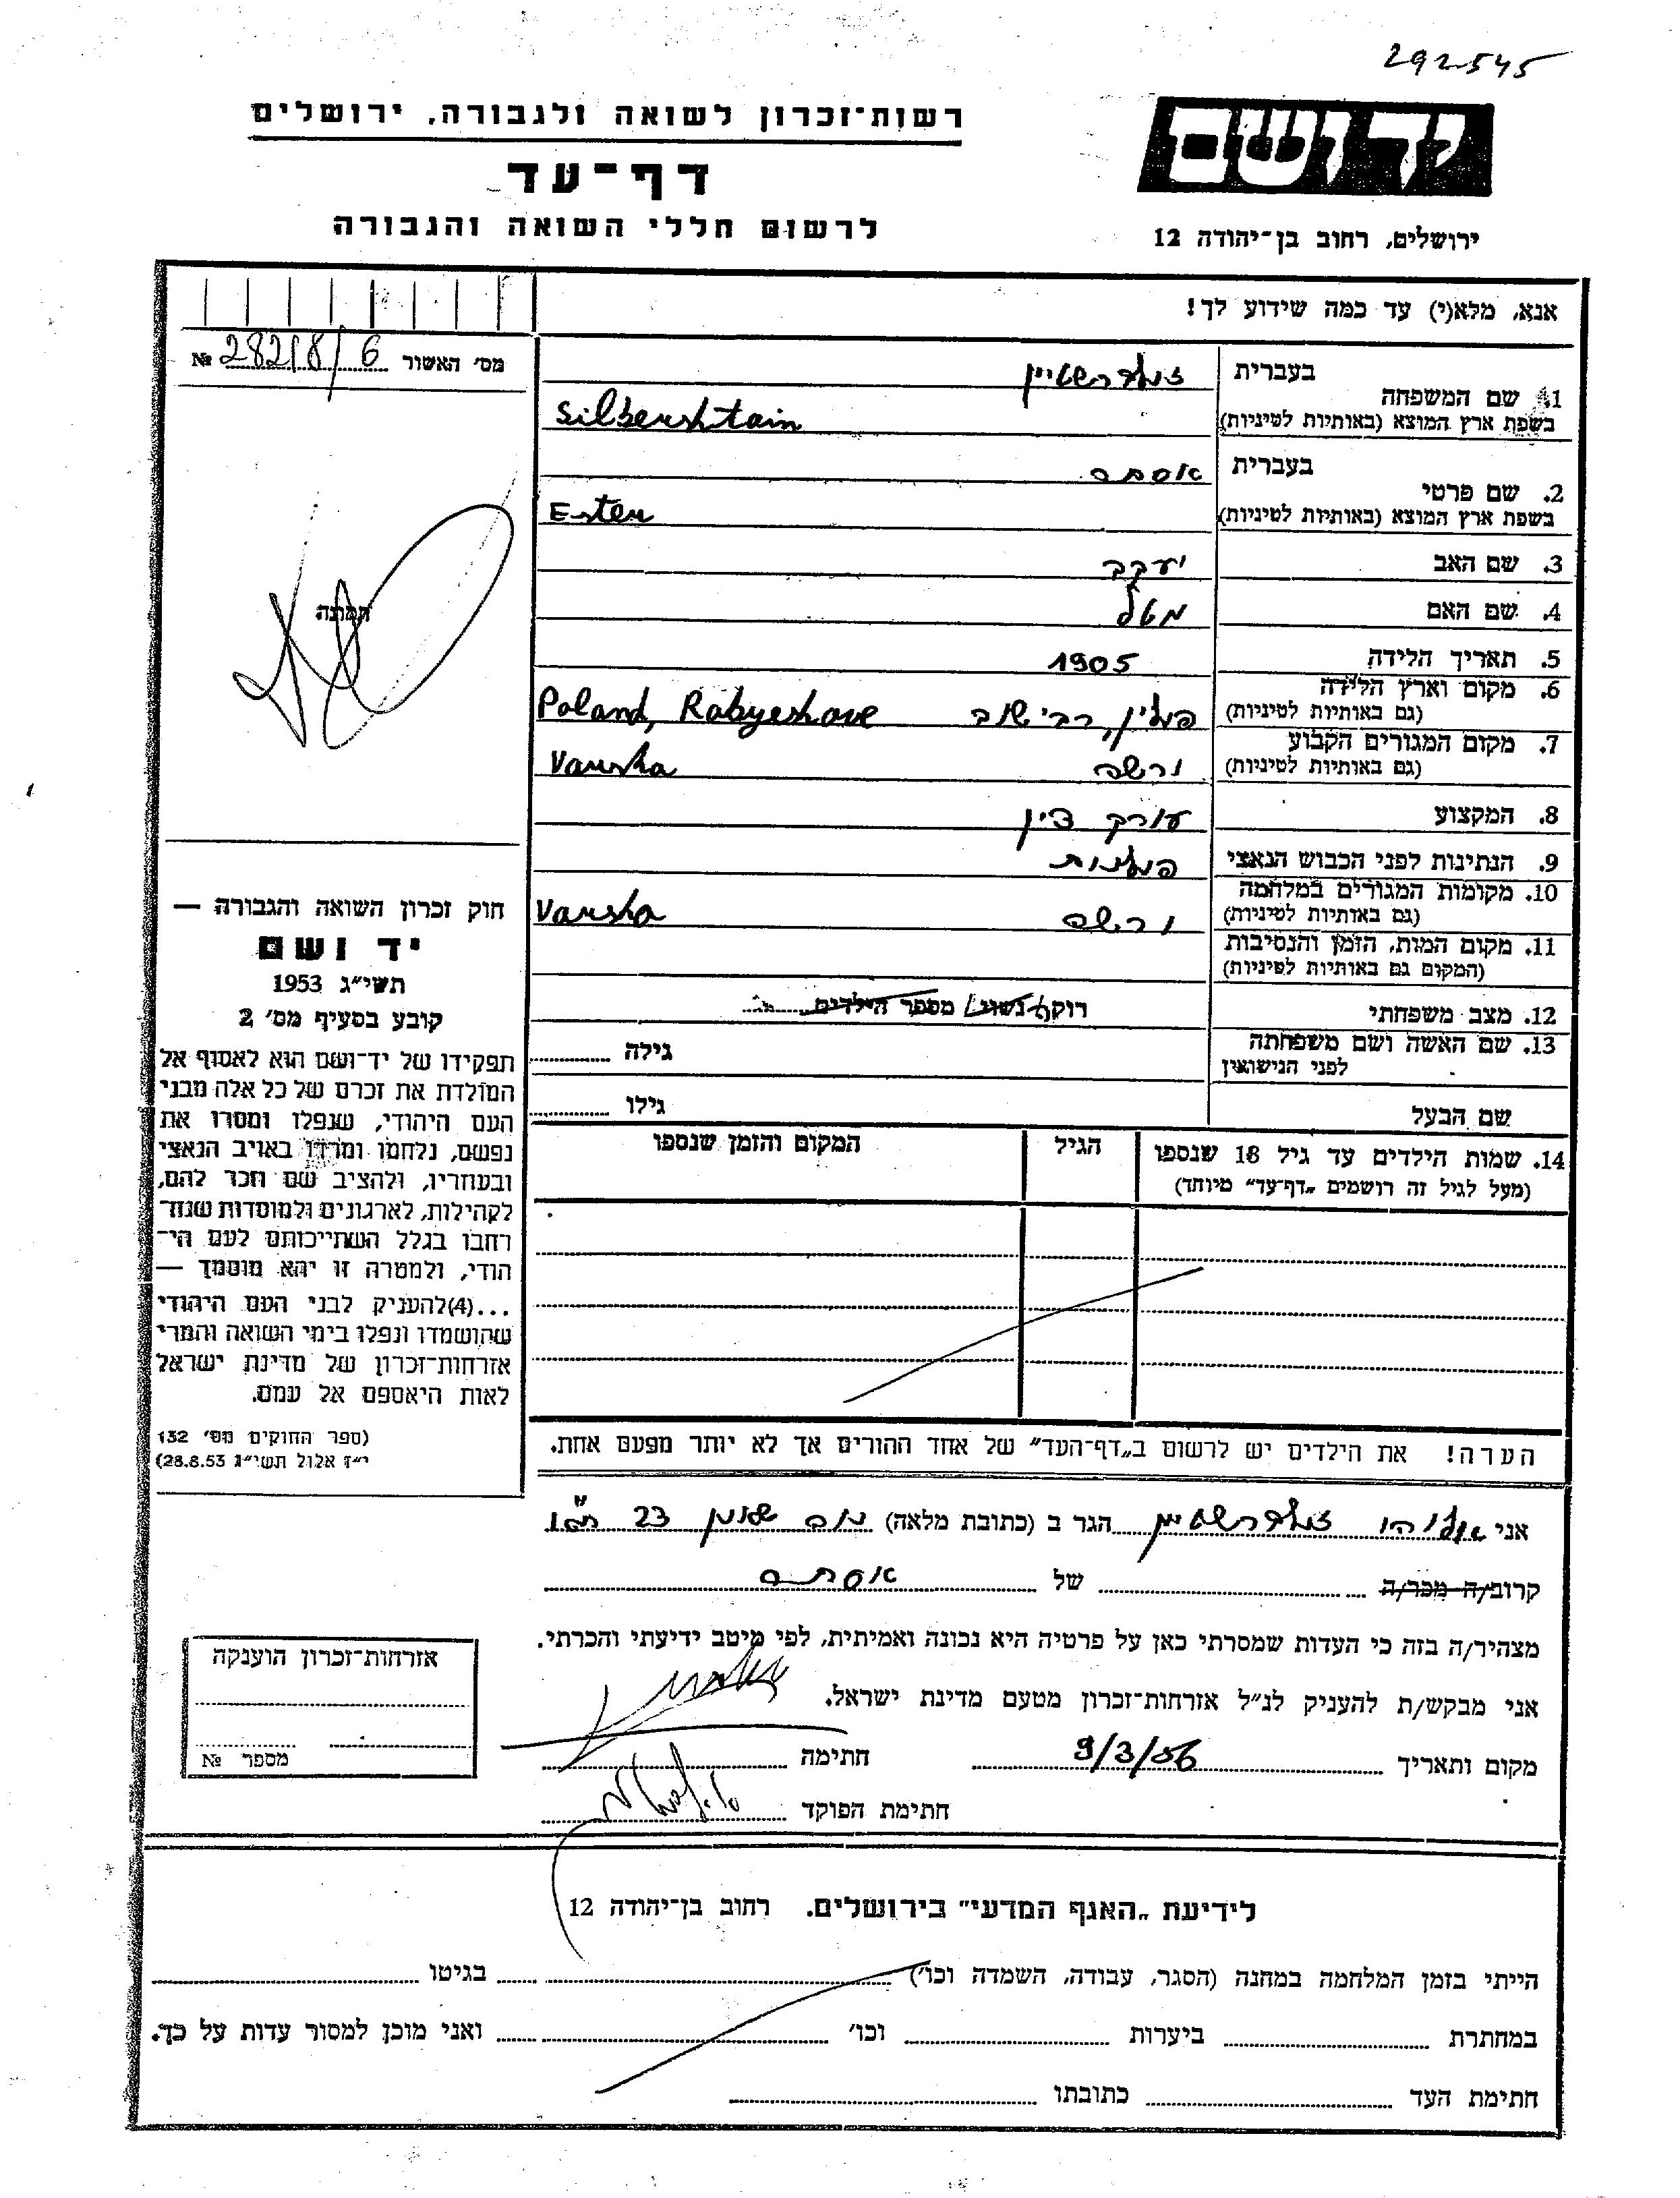 292545
רשות־זכרון לשואה ולגבורה, ירושלים
יד ושם
דף־עד
לרשום חללי השואה והגבורה
ירושלים, רחוב בן־יהודה 12
אנא, מלא(י) עד כמה שידוע לך!
מס׳ האשור 282/8/6 №
1. שם המשפחה בעברית זילברשטיין
בשפת ארץ המוצא (באותיות לטיניות) Silbershtain
2. שם פרטי בעברית אסתר
בשפת ארץ המוצא (באותיות לטיניות) Ester
3. שם האב יעקב
4. שם האם מטל
התמונה
5. תאריך הלידה 1905
6. מקום וארץ הלידה
(גם באותיות לטיניות) פולין, רבישוב Poland, Rabyeshove
7. מקום המגורים הקבוע
(גם באותיות לטיניות) ורשה Varsha
8. המקצוע עורק דין
9. הנתינות לפני הכבוש הנאצי פולנית
10. מקומות המגורים במלחמה
(גם באותיות לטיניות) ורשה Varsha
11. מקום המות, הזמן והנסיבות
(המקום גם באותיות לטיניות)
12. מצב משפחתי רוק/ נשוי/ מספר הילדים
13. שם האשה ושם משפחתה
לפני הנישואין גילה
שם הבעל גילו
14. שמות הילדים עד גיל 18 שנספו הגיל המקום והזמן שנספו
(מעל לגיל זה רושמים „דף־עד" מיוחד)
הערה! את הילדים יש לרשום ב„דף־העד" של אחד ההורים אך לא יותר מפעם אחת.
חוק זכרון השואה והגבורה —
יד ושם
תשי״ג 1953
קובע בסעיף מס׳ 2
תפקידו של יד־ושם הוא לאסוף אל
המולדת את זכרם של כל אלה מבני
העם היהודי, שנפלו ומסרו את
נפשם, נלחמו ומרדו באויב הנאצי
ובעוזריו, ולהציב שם וזכר להם,
לקהילות, לארגונים ולמוסדות שנח־
רחבו בגלל השתייכותם לעם הי־
הודי, ולמטרה זו יהא מוסמך —
...(4)להעניק לבני העם היהודי
שהושמדו ונפלו בימי השואה והמרי
אזרחות־זכרון של מדינת ישראל
לאות היאספם אל עמם.
(ספר החוקים מס׳ 132
י״ז אלול תשי״ג 28.8.53)
אני אליהו זילברשטיין הגר ב (כתובת מלאה) 23 ת״א
קרוב/ה מכר/ה של אסתר
מצהיר/ה בזה כי העדות שמסרתי כאן על פרטיה היא נכונה ואמיתית, לפי מיטב ידיעתי והכרתי.
אני מבקש/ת להעניק לנ״ל אזרחות־זכרון מטעם מדינת ישראל.
מקום ותאריך 9/3/56 חתימה
חתימת הפוקד
אזרחות־זכרון הוענקה
מספר №
לידיעת „האגף המדעי" בירושלים. רחוב בן־יהודה 12
הייתי בזמן המלחמה במחנה (הסגר, עבודה, השמדה וכו׳) בגיטו
במחתרת ביערות וכו׳ ואני מוכן למסור עדות על כך.
חתימת העד כתובתו